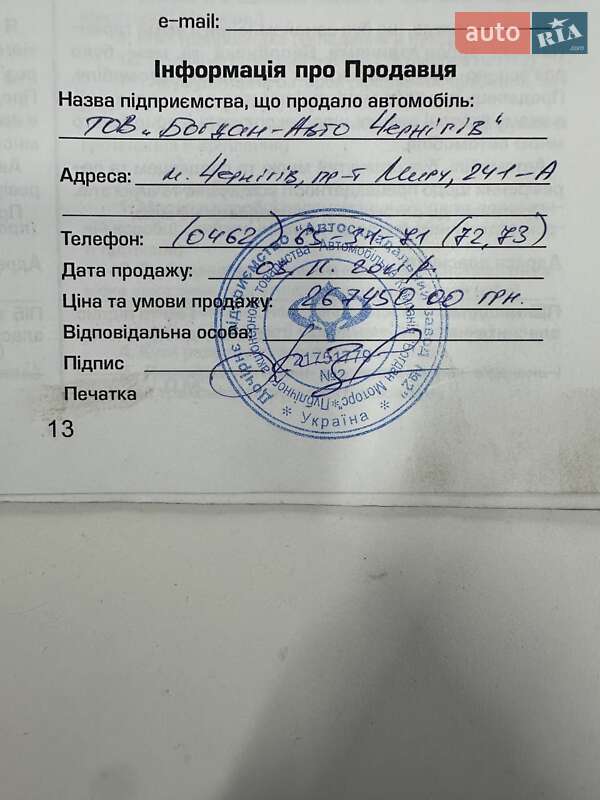 auto RIA.com
e-mail:
Інформація про Продавця
Назва підприємства, що продало автомобіль:
ТОВ „Богдан-Авто Чернігів“
Адреса: м. Чернігів, пр-т Миру, 241-А
Телефон: (0462) 65 34 71 (72, 73)
Дата продажу: 03. 11. 2011
Ціна та умови продажу: 267450,00 грн.
Відповідальна особа:
Підпис
Печатка
13
Дочірнє підприємство "Автоскладальний завод №2"
Публічного акціонерного товариства "Автомобільна Компанія "Богдан Моторс"
№2
* Україна *